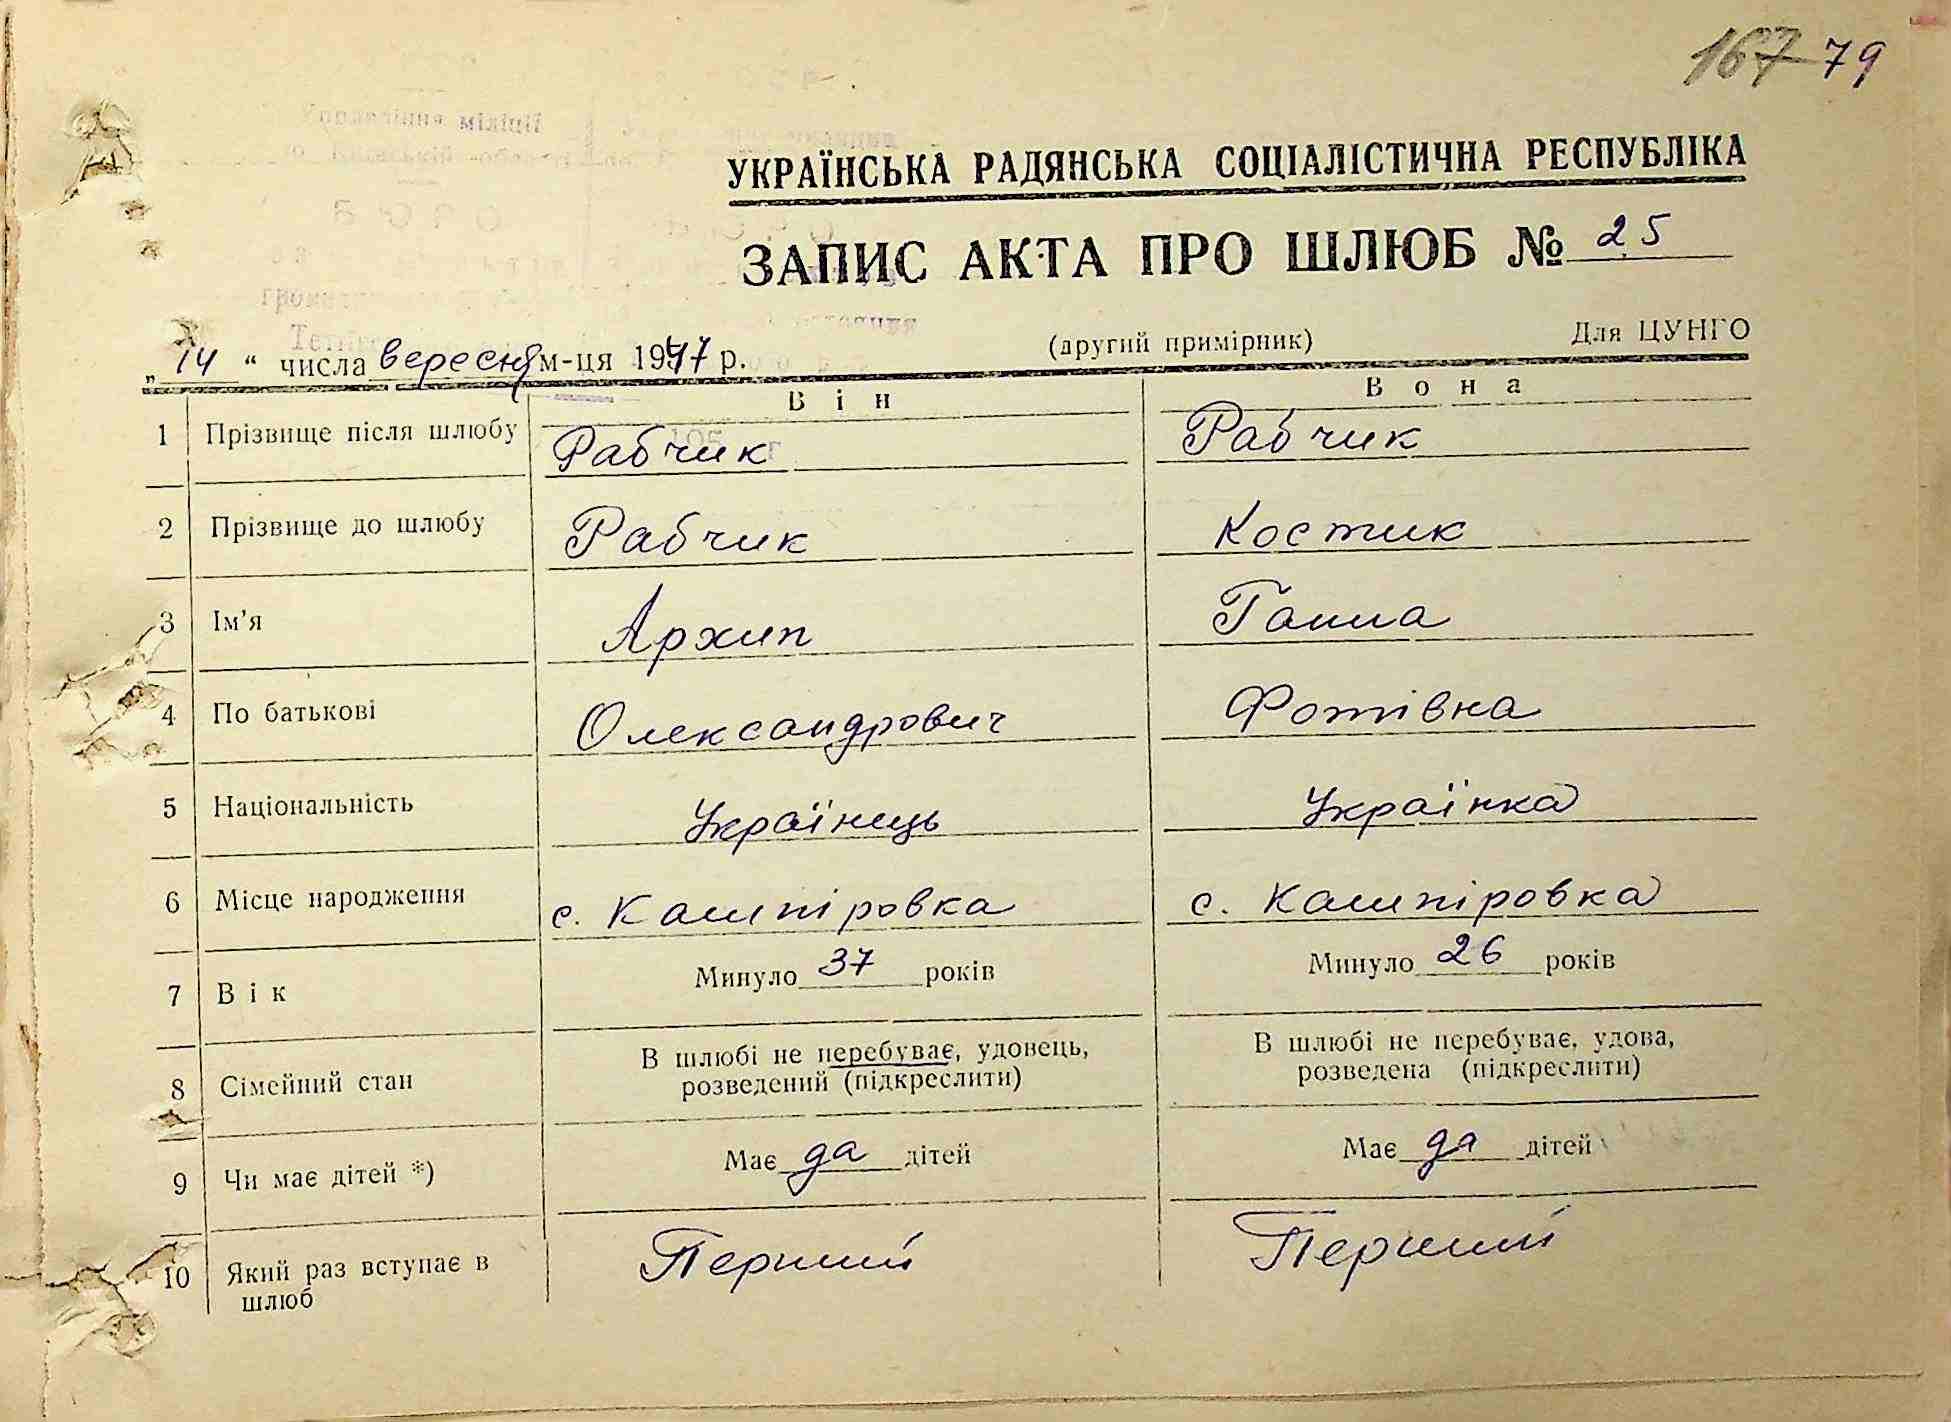 167 79
УКРАЇНСЬКА РАДЯНСЬКА СОЦІАЛІСТИЧНА РЕСПУБЛІКА
ЗАПИС АКТА ПРО ШЛЮБ № 25
(другий примірник) Для ЦУНГО
„14“ числа вересня м-ця 1947 р.
Він Вона
1 Прізвище після шлюбу Рабчик Рабчик
2 Прізвище до шлюбу Рабчик Костик
3 Ім'я Архип Ганна
4 По батькові Олександрович Фотівна
5 Національність Українець Українка
6 Місце народження с. Кашпіровка с. Кашпіровка
7 Вік Минуло 37 років Минуло 26 років
8 Сімейний стан В шлюбі не перебуває, удовець, розведений (підкреслити) В шлюбі не перебуває, удова, розведена (підкреслити)
9 Чи має дітей *) Має да дітей Має да дітей
10 Який раз вступає в шлюб Перший Перший